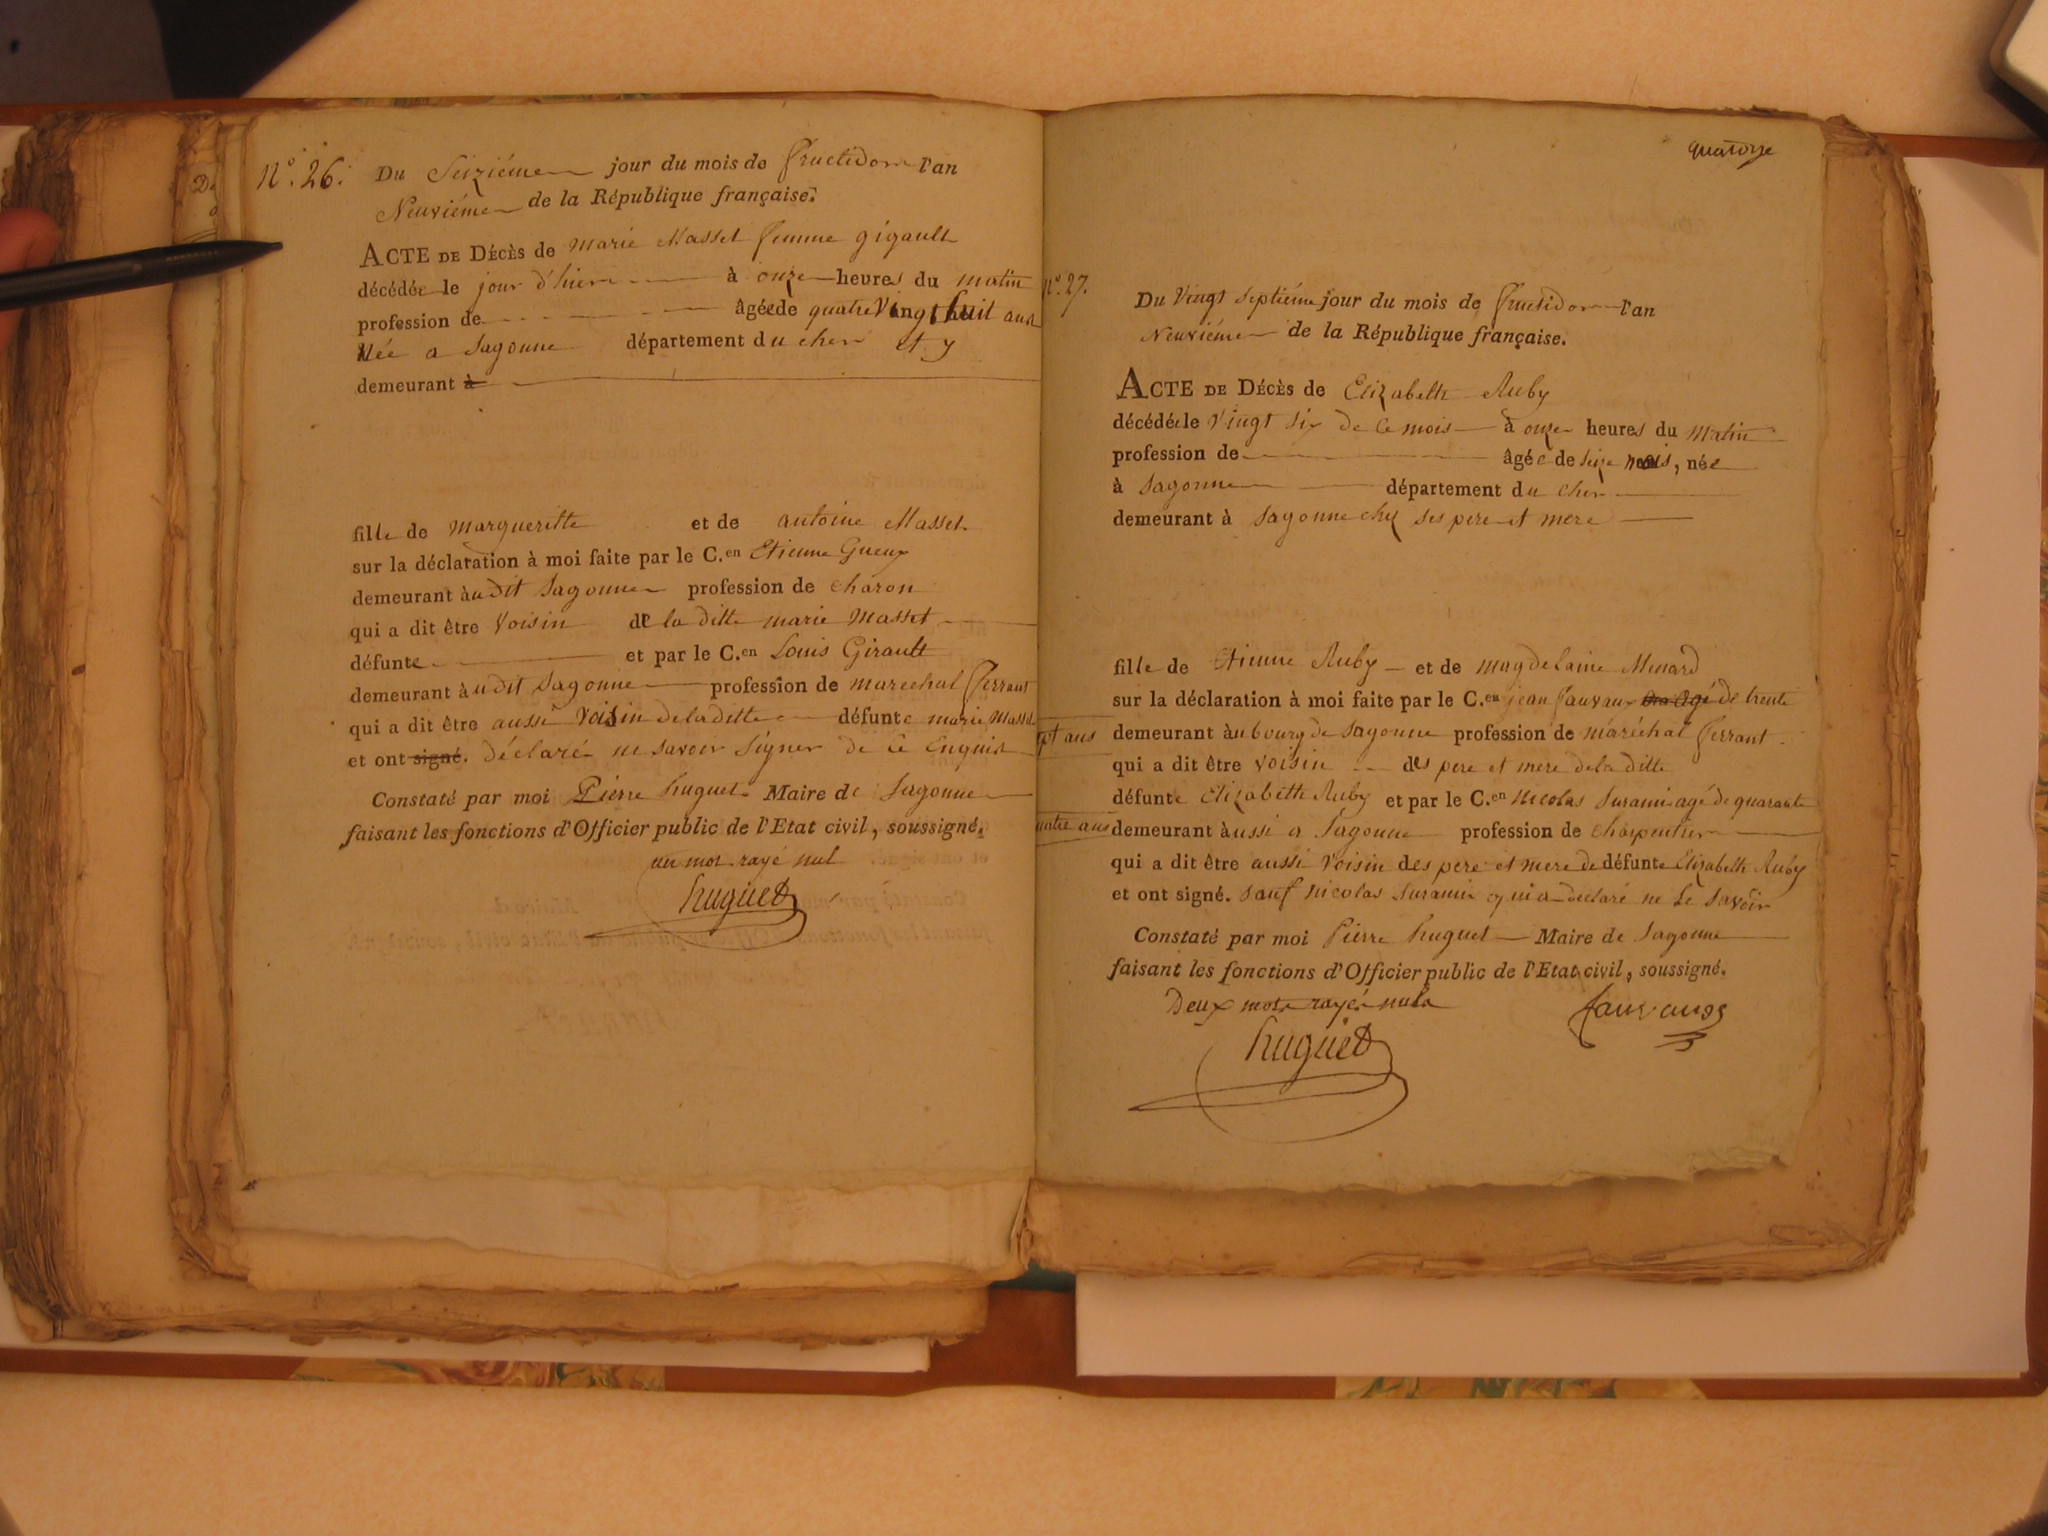 N.o 26.
Du Seiziéme jour du mois de fructidor l'an
Neuviéme de la République française.
ACTE DE DÉCÈS de marie Masset femme gigault
décédée le jour d'hier à onze heures du matin
profession de âgée de quatre Vingt huit ans
Née a Sagonne département du cher et y
demeurant à
fille de margueritte et de antoine Masset.
sur la déclaration à moi faite par le C.en Etienne Gueux
demeurant audit Sagonne profession de charon
qui a dit être Voisin de la ditte marie Masset
défunte et par le C.en Louis Girault
demeurant audit Sagonne profession de marechal ferrant
qui a dit être aussi Voisin de la ditte défunte marie Masset
et ont signé. déclaré ne savoir signer de ce Enquis
Constaté par moi Pierre huguet Maire de Sagonne
faisant les fonctions d'Officier public de l'Etat civil, soussigné.
un mot rayé nul
huguet
quatorze
n.o 27.
Du Vingt Septiéme jour du mois de fructidor l'an
Neuviéme de la République française.
ACTE DE DÉCÈS de Elizabeth Ruby
décédée le Vingt Six de ce mois à onze heures du Matin
profession de âgée de Seize mois, née
à Sagonne département du cher
demeurant à Sagonne chez ses pere et mere
fille de Etienne Ruby et de magdelaine Menard
sur la déclaration à moi faite par le C.en jean fauvaux agé de trente
ept ans demeurant au bourg de Sagonne profession de maréchal ferrant
qui a dit être voisin des pere et mere de la ditte
défunte Elizabeth Ruby et par le C.en Nicolas Surami agé de quarante
uatre ans demeurant aussi a Sagonne profession de charpentier
qui a dit être aussi Voisin des pere et mere de défunte Elizabeth Ruby
et ont signé. sauf Nicolas Surami qui a déclaré ne Le Savoir
Constaté par moi Pierre huguet Maire de Sagonne
faisant les fonctions d'Officier public de l'Etat civil, soussigné.
Deux mots rayés nuls
fauvaux
huguet